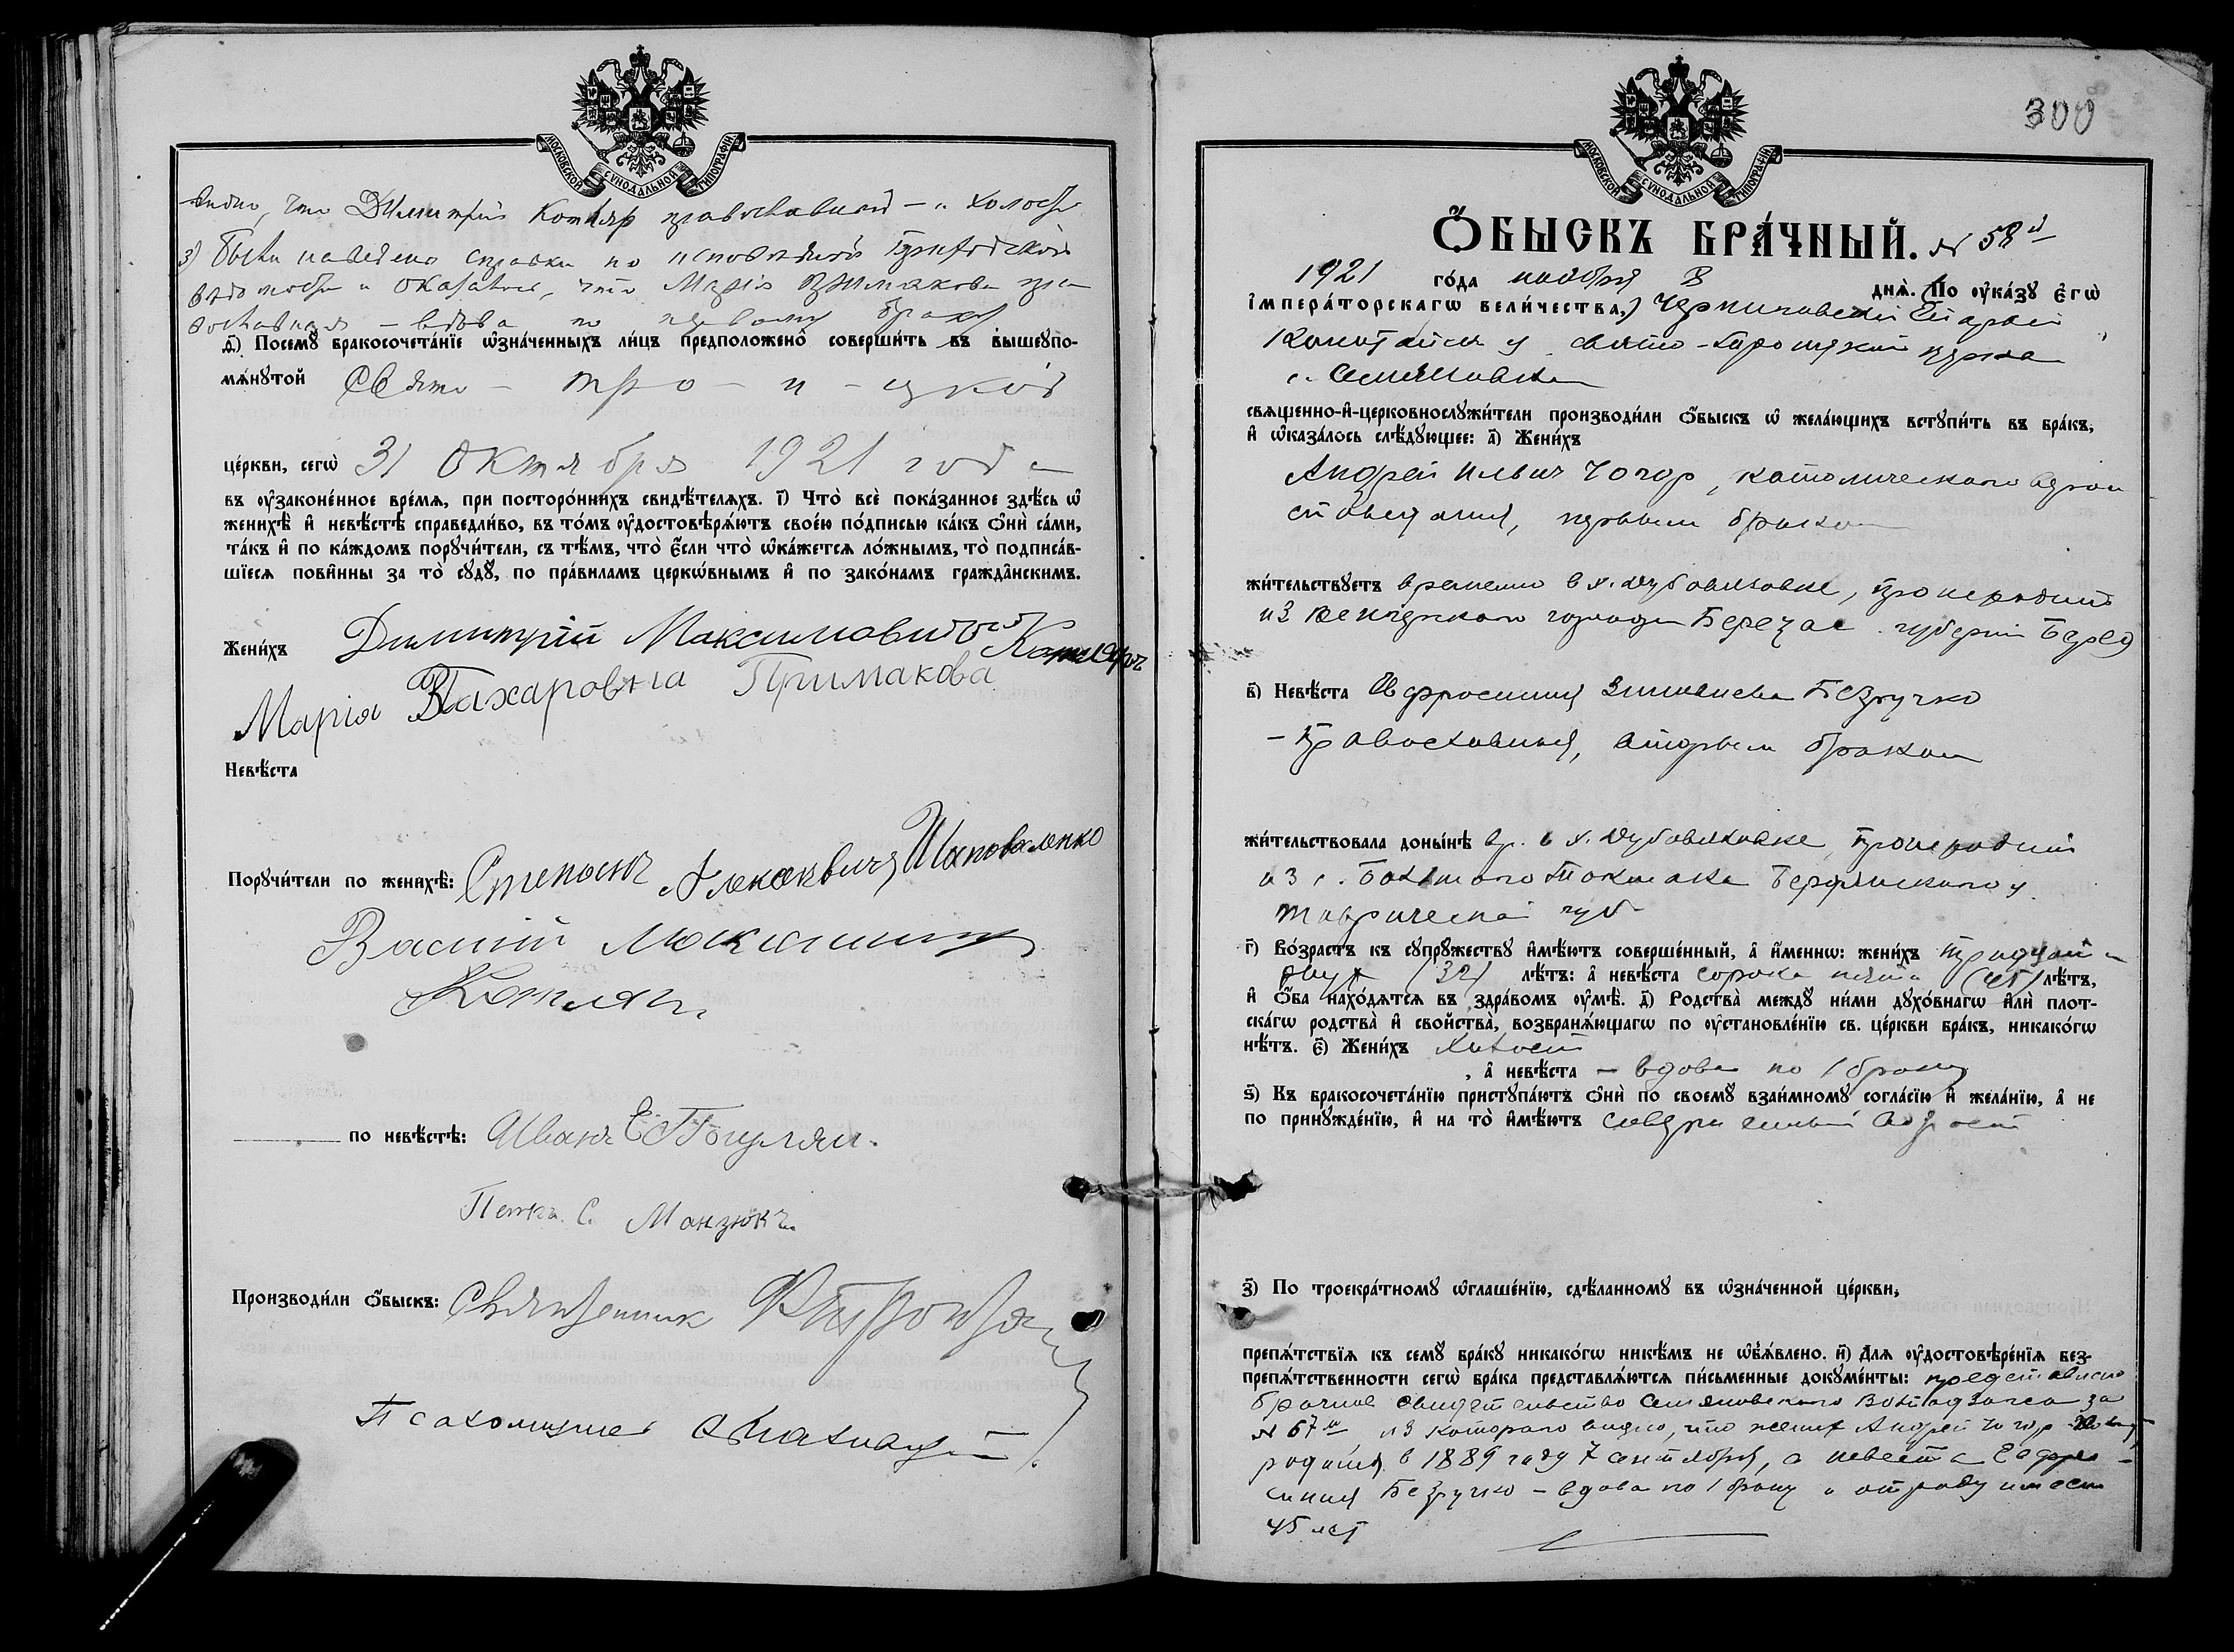 МОСКОВСКОЙ СѴНОДАЛЬНОЙ ТИПОГРАФІИ
видно, что Димитрий Котляр православный – и холост
3) Были наведены справки по исповедной
и оказалось, что Марія Примакова пра
вославная – вдова по первому браку
д҃) Посемꙋ бракосочета́нїе ѡ҆зна́ченныхъ ли́цъ предположено̀ соверши́ть въ вышеꙋпо-
мѧ́нꙋтой Свято – тро – и – цкой
це́ркви, сегѡ̀ 31 Октября 1921 года
въ ᲂу҆законе́нное вре́мѧ, при посторо́ннихъ свидѣ́телѧхъ. і҃) Что̀ всѐ пока́занное здѣ́сь ѡ҆
женихѣ̀ и҆ невѣ́стѣ справедли́во, въ то́мъ ᲂу҆достовѣрѧ́ютъ свое́ю по́дписью ка́къ ѻ҆нѝ са́ми,
та́къ и҆ по ка́ждомъ порꙋчи́тели, съ тѣ́мъ, что̀ є҆́сли что̀ ѡ҆ка́жетсѧ ло́жнымъ, то̀ подписа́в-
шїесѧ пови́нны за то̀ сꙋдꙋ̀, по пра́виламъ церко́внымъ и҆ по зако́намъ гражда́нскимъ.
Жени́хъ Димитрій Максимовичъ Котляръ
Марія Захаровна Примакова
Невѣ́ста
Порꙋчи́тели по женихѣ̀: Степанъ Шаповаленко
Василій Максимов
Котляръ
по невѣ́стѣ: Иванъ Е
Петръ С. Манзюкъ
Производи́ли ѻ҆́быскъ: Священник
Псаломщик
300
МОСКОВСКОЙ СѴНОДАЛЬНОЙ ТИПОГРАФІИ
Ѻ҆́БЫСКЪ БРА́ЧНЫЙ. № 58й
1921 го́да ноября 8 днѧ̀. (По ᲂу҆ка́зꙋ є҆гѡ̀
і҆мпера́торскагѡ вели́чества,)
у. свято-Троицкой церкви
с. Семеновки
свѧщенно-и҆-церковнослꙋжи́тели производи́ли ѻ҆́быскъ ѡ҆ жела́ющихъ встꙋпи́ть въ бра́къ,
и҆ ѡ҆каза́лось слѣ́дꙋющее: а҃) Жени́хъ
Андрей Ильич Чогор, католического веро
исповедания, первым браком
жи́тельствꙋетъ временно в х. Дубовиковке, происходит
из города губернии
в҃) Невѣ́ста Евфросиния Зиновиева Безручко
– Православная, вторым браком
жи́тельствовала доны́нѣ вр. в х. Дубовиковке, происходит
из с. Большого Токмака Бердянского у.
Таврической губ.
г҃) Во́зрастъ къ сꙋпрꙋ́жествꙋ и҆мѣ́ютъ соверше́нный, а҆ и҆́менно: жени́хъ тридцати
двух (32) лѣ́тъ: а҆ невѣ́ста сорока пяти (45) лѣ́тъ,
и҆ ѻ҆́ба нахо́дѧтсѧ въ здра́вомъ ᲂу҆мѣ̀. д҃) Родства̀ междꙋ ни́ми дꙋхо́внагѡ и҆лѝ плот-
ска́гѡ родства̀ и҆ свойства̀, возбранѧ́ющагѡ по ᲂу҆становле́нїю св. це́ркви бра́къ, никако́гѡ
нѣ́тъ. є҃) Жени́хъ холост
, а҆ невѣ́ста – вдова по 1 браку
ѕ҃) Къ бракосочета́нїю пристꙋпа́ютъ ѻ҆нѝ по своемꙋ̀ взаи́мномꙋ согла́сїю и҆ жела́нїю, а҆ не
по принꙋжде́нїю, и҆ на то̀ и҆мѣ́ютъ совершенный возраст
з҃) По троекра́тномꙋ ѡ҆глаше́нїю, сдѣ́ланномꙋ въ ѡ҆зна́ченной це́ркви,
препѧ́тствїѧ къ семꙋ̀ бра́кꙋ никако́гѡ никѣ́мъ не ѡ҆б̾ѧ́влено. и҃) Длѧ ᲂу҆достовѣре́нїѧ без-
препѧ́тственности сегѡ̀ бра́ка представлѧ́ютсѧ пи́сьменные докꙋме́нты: представлено
брачное свидетельство Семеновского Волподзагса за
№ 67м из которого видно, что жених Андрей Чогор
родился в 1889 году 7 сентября, а невеста Евфро-
синия Безручко – вдова по 1 браку и от роду имеет
45 лет